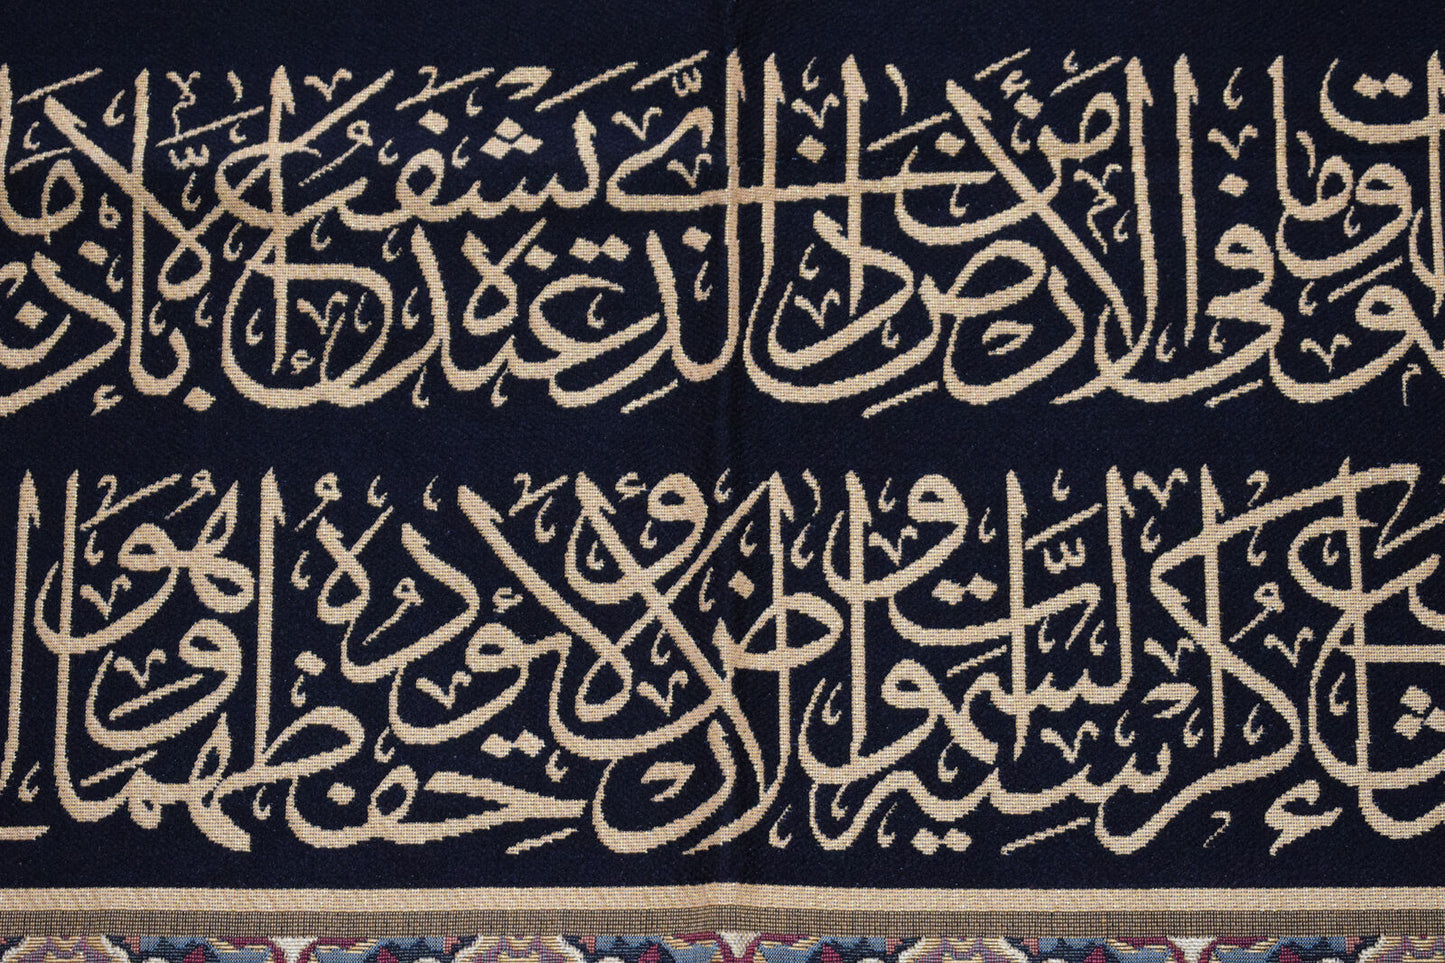 وَمَا فِي الْأَرْضِ مَنْ ذَا الَّذِي يَشْفَعُ عِنْدَهُ إِلَّا بِإِذْنِ
شَاءَ وَسِعَ كُرْسِيُّهُ السَّمٰوَاتِ وَالْأَرْضَ وَلَا يَئُودُهُ حِفْظُهُمَا وَهُوَ